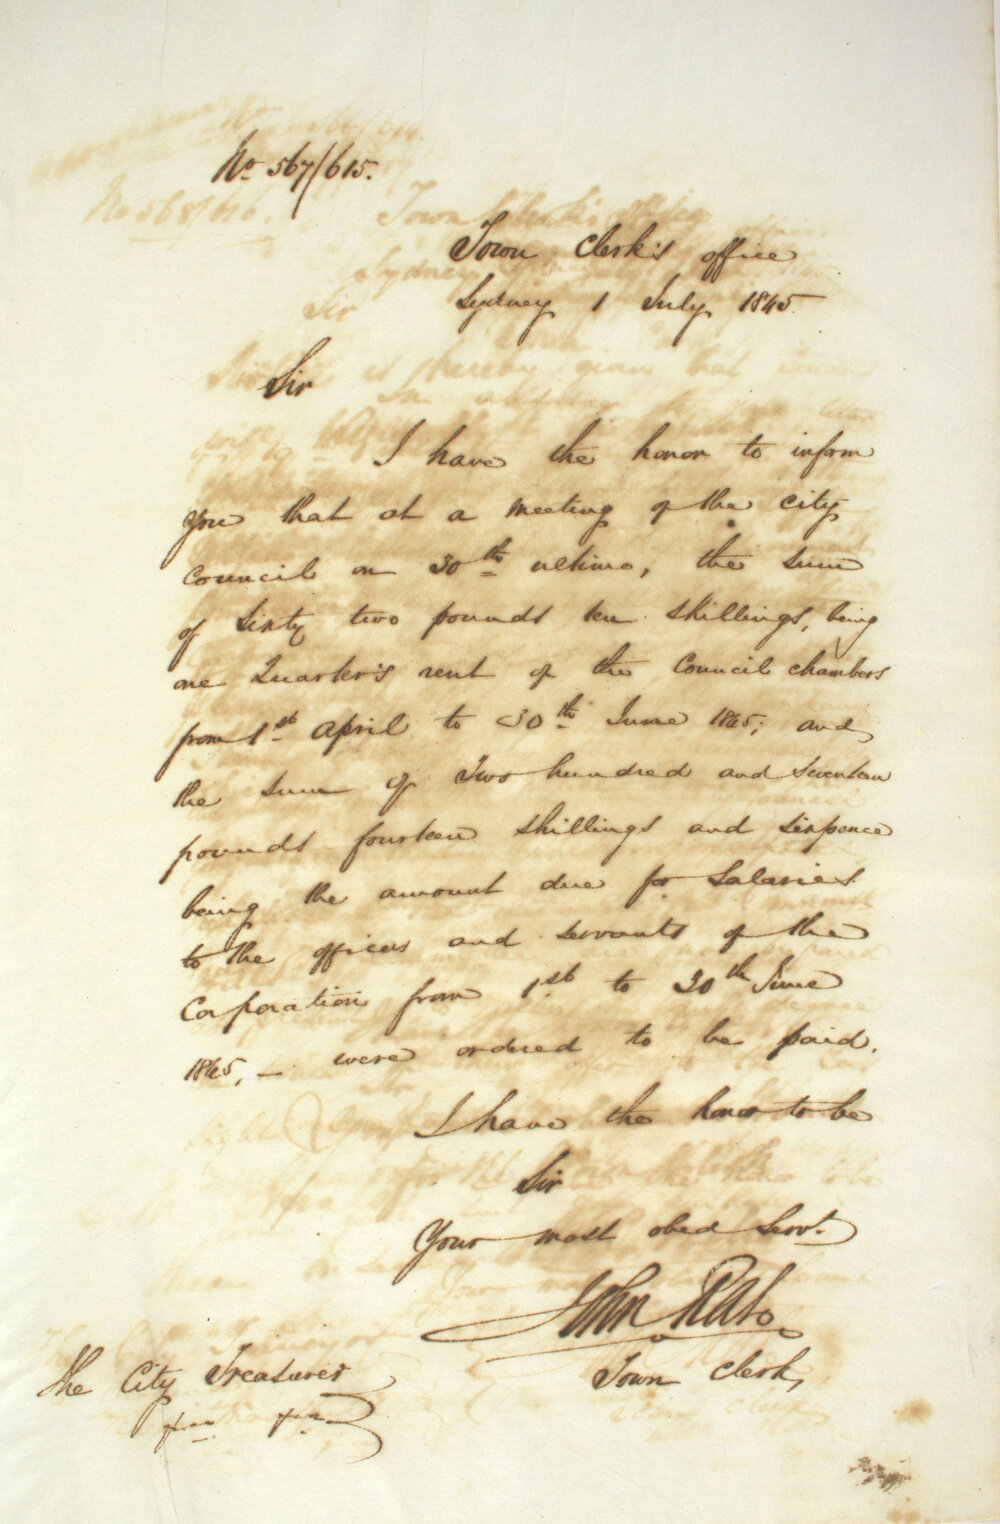 No. 567/615.
Town Clerk's office
Sydney 1 July 1845
Sir
I have the honor to inform
you that at a meeting of the city
Council on 30th ultimo, the sum
of Sixty two pounds ten shillings, being
one Quarter's rent of the Council chambers
from 1st April to 30th June 1845; and
the sum of Two hundred and seventeen
pounds fourteen shillings and sixpence
being the amount due for Salaries
to the officers and servants of the
Corporation from 1st to 30th June
1845, – were ordered to be paid.
I have the honor to be
Sir
Your most obed Servt.
John Rae
Town Clerk,
The City Treasurer